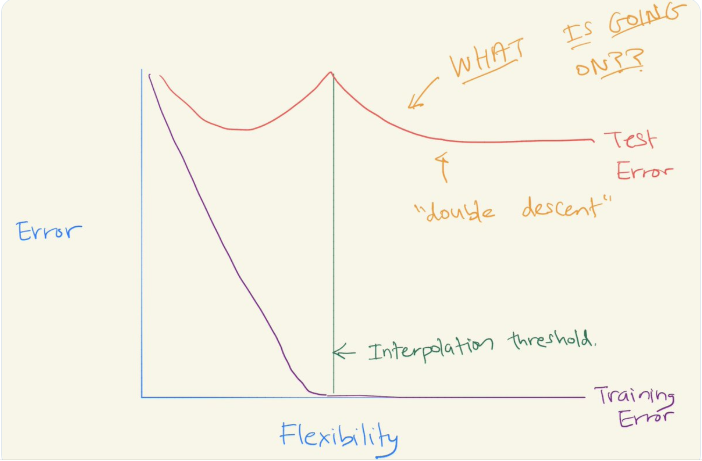 WHAT IS GOING
ON??
Test
Error
"double descent"
Error
Interpolation threshold.
Training
Error
Flexibility